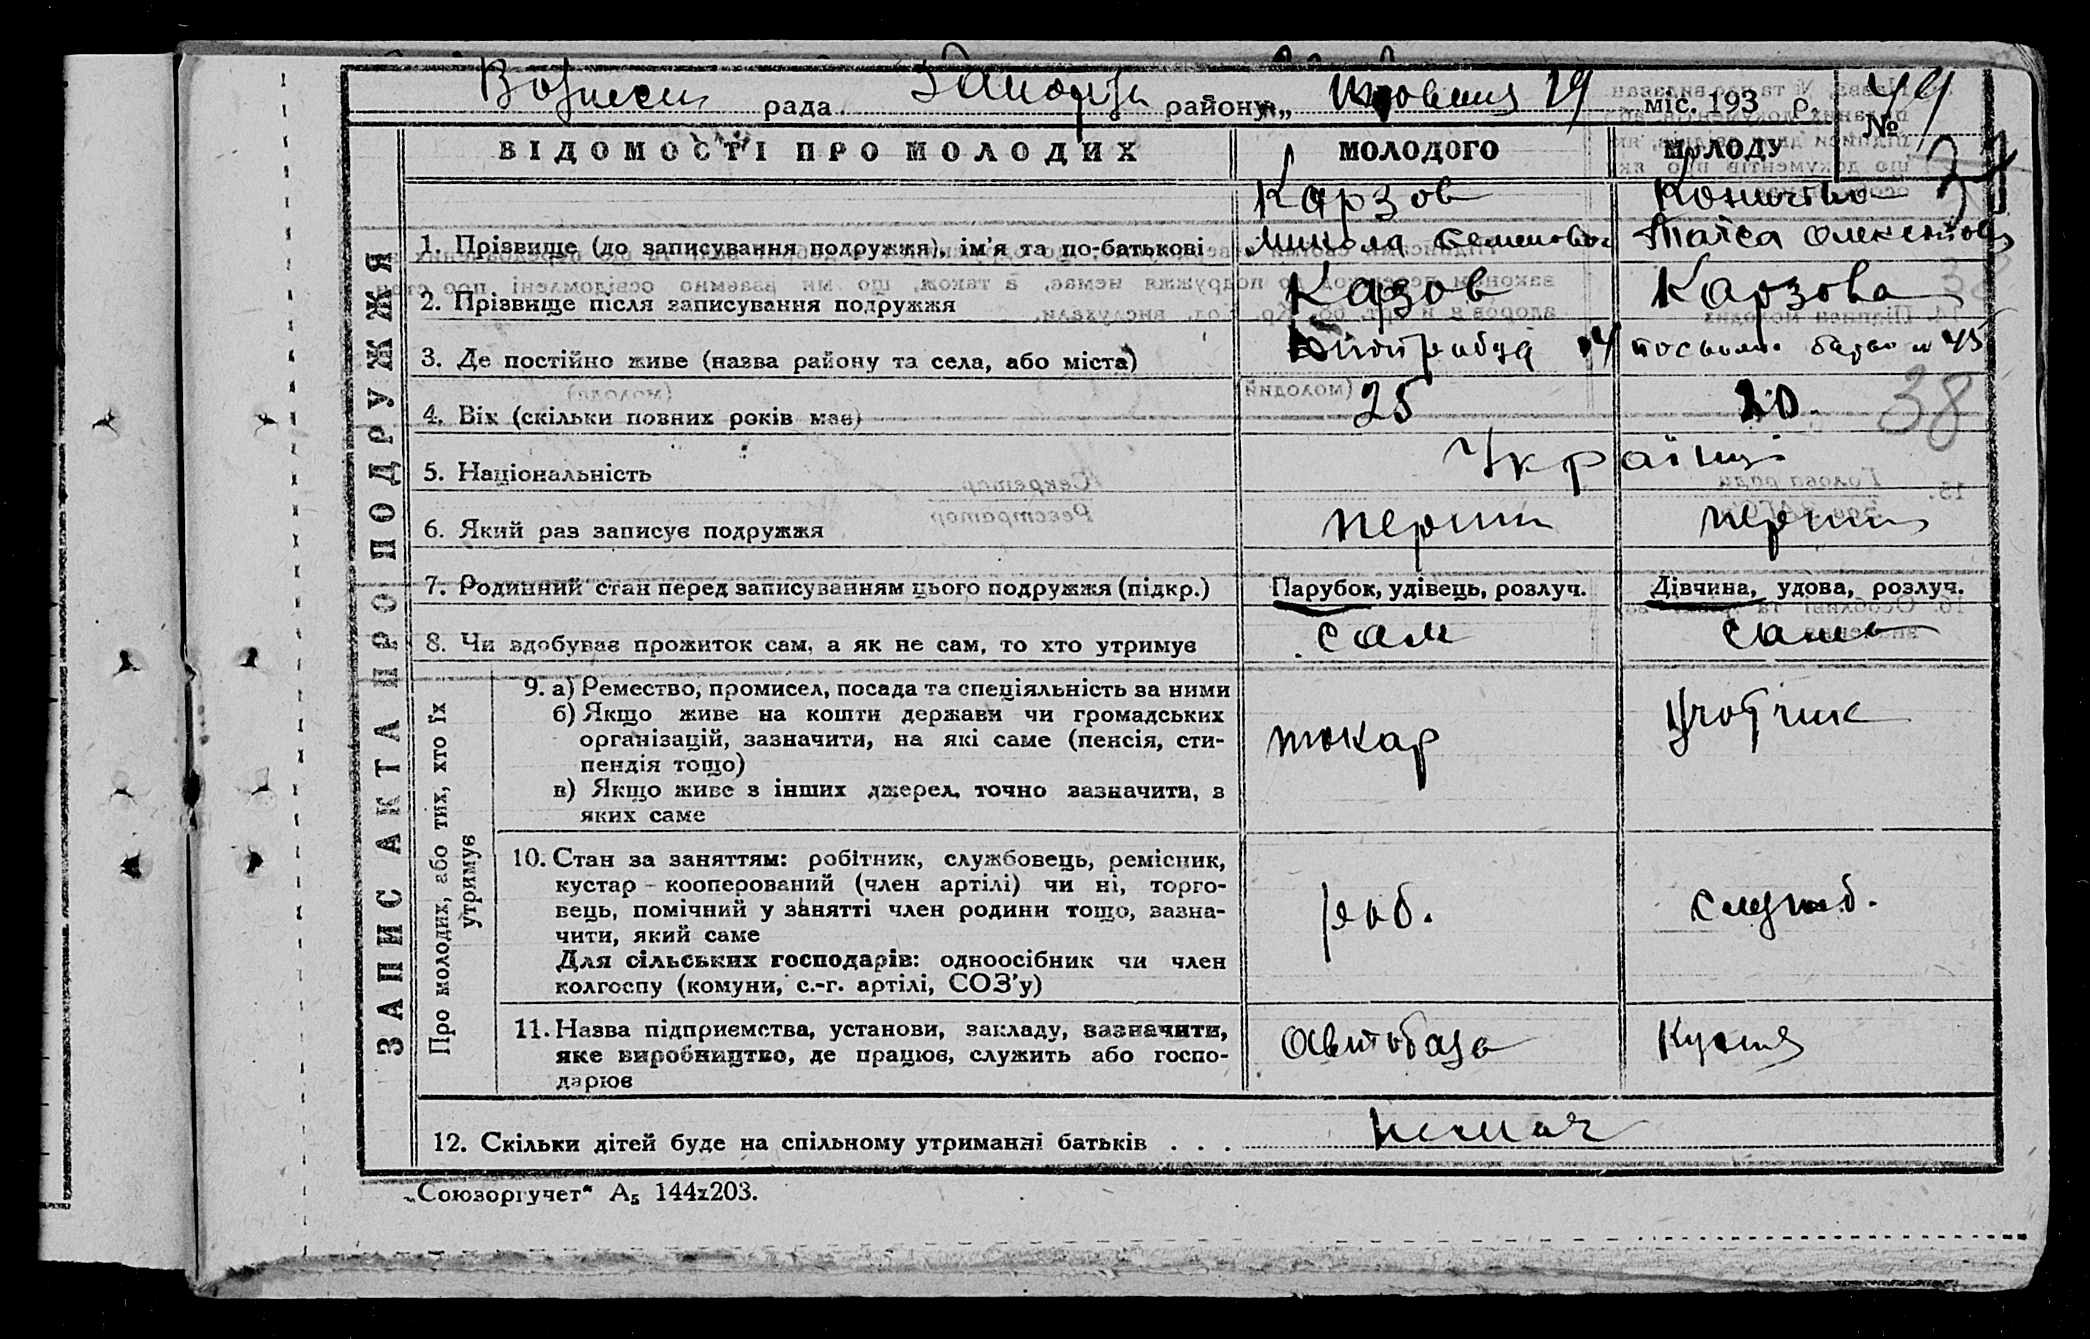 Вознесен рада Запоріз району „ 19 міс. 193 р. № 44
ВІДОМОСТІ ПРО МОЛОДИХ МОЛОДОГО МОЛОДУ
37
Карзов
1. Прізвище (до записування подружжя), ім'я та по-батькові Микола Семенович Таїса
2. Прізвище після записування подружжя Казов Карзова
3. Де постійно живе (назва району та села, або міста)
4. Вік (скільки повних років має) 25 20.
38
5. Національність Українці
6. Який раз записує подружжя перший перший
7. Родинний стан перед записуванням цього подружжя (підкр.) Парубок, удівець, розлуч. Дівчина, удова, розлуч.
8. Чи здобуває прожиток сам, а як не сам, то хто утримує сам сама
ЗАПИС АКТА ПРО ПОДРУЖЖЯ
Про молодих, або тих, хто їх
утримує
9. а) Ремество, промисел, посада та спеціяльність за ними
б) Якщо живе на кошти держави чи громадських
організацій, зазначити, на які саме (пенсія, сти-
пендія тощо)
в) Якщо живе з інших джерел, точно зазначити, з
яких саме
токар
10. Стан за заняттям: робітник, службовець, ремісник,
кустар - кооперований (член артілі) чи ні, торго-
вець, помічний у занятті член родини тощо, зазна-
чити, який саме
Для сільських господарів: одноосібник чи член
колгоспу (комуни, с.-г. артілі, СОЗ'у)
роб. служб.
11. Назва підприємства, установи, закладу, зазначити,
яке виробництво, де працює, служить або госпо-
дарює
Кухня
12. Скільки дітей буде на спільному утриманні батьків . . . немає
„Союзоргучет" А5 144х203.